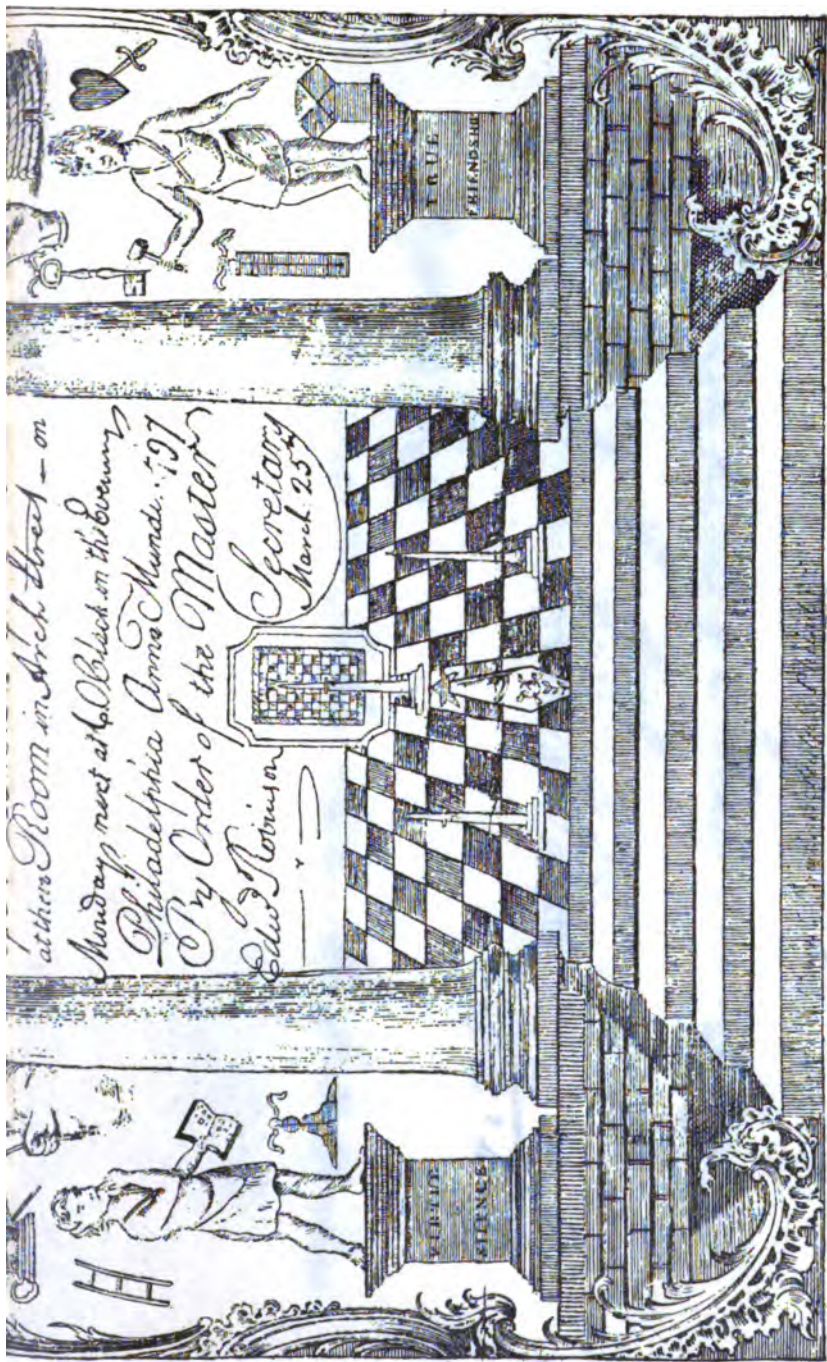 at their Room in Arch Street — on
Monday next at 6 OClock in the Evening
Philadelphia Anno Mundi. 5797
By Order of the Master
Edwd Robinson
Secretary
March 25th
VIRTUE
SILENCE
TRUE
FRIENDSHIP